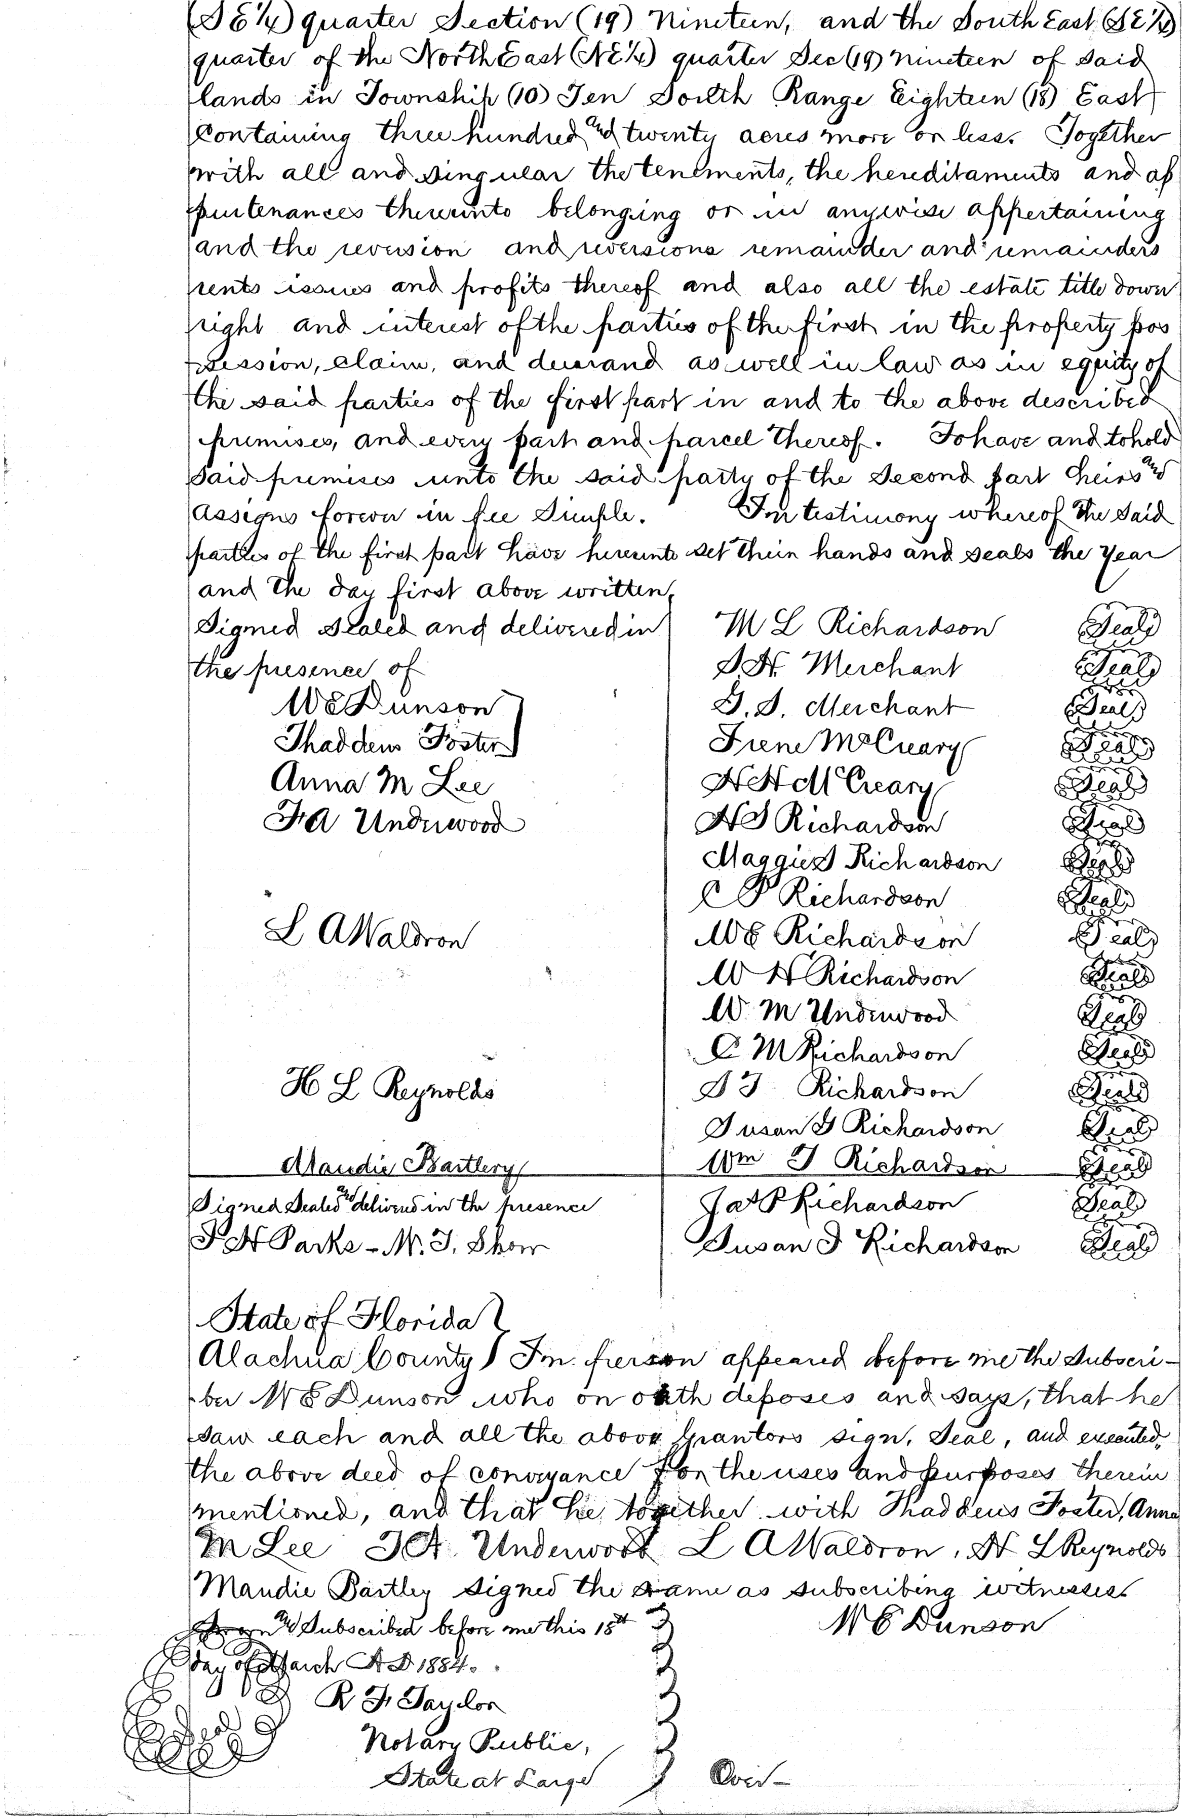 (SE¼) quarter Section (19) Nineteen, and the South East (SE¼)
quarter of the North East (NE¼) quarter Sec (19) Nineteen of said
lands in Township (10) Ten South Range Eighteen (18) East
Containing three hundred and twenty acres more or less. Together
with all and singular the tenements, the hereditaments and ap
purtenances thereunto belonging or in anywise appertaining
and the reversion and reversions remainder and remainders
rents issues and profits thereof and also all the estate title down
right and interest of the parties of the first in the property pos
session, claim, and demand as well in law as in equity of
the said parties of the first part in and to the above described
premises, and every part and parcel thereof. To have and to hold
said premises unto the said party of the Second part heirs and
assigns forever in fee Simple. In testimony whereof the said
parties of the first part have hereunto set their hands and seals the year
and the day first above written,
Signed Sealed and delivered in M L Richardson Seal
the presence of S. H. Merchant Seal
W E Dunson G. S. Merchant Seal
Thaddeus Foster Irene McCreary Seal
Anna M Lee H H McCreary Seal
F A Underwood H S Richardson Seal
Maggie S Richardson Seal
C P Richardson Seal
L A Waldron W E Richardson Seal
W H Richardson Seal
W. M Underwood Seal
C M Richardson Seal
H L Reynolds S F Richardson Seal
Susan G Richardson Seal
Maudie Bartlery Wm J Richardson Seal
Signed Sealed and delivered in the presence Jas P Richardson Seal
J H Parks - M. J. Show Susan J Richardson Seal
State of Florida
Alachua County In person appeared before me the Subscri-
ber W E Dunson who on oath deposes and says, that he
saw each and all the above Grantors sign, Seal, and executed,
the above deed of conveyance for the uses and purposes therein
mentioned, and that he together with Thaddeus Foster, Anna
M Lee F A. Underwood L A Waldron, H L Reynolds
Maudie Bartley signed the same as subscribing witnesses
Sworn and Subscribed before me this 18th W E Dunson
day of March A D 1884.
R F Taylor
Seal Notary Public,
State at Large Over-